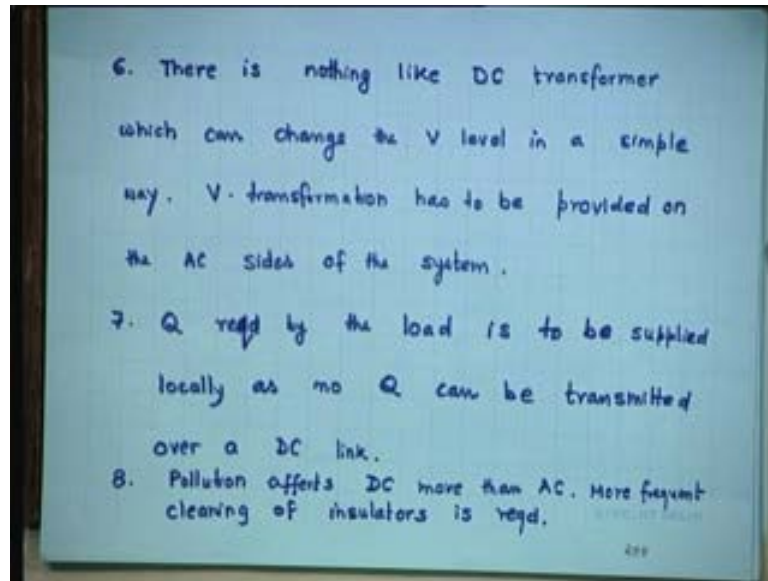 6. There is nothing like DC transformer
which can change the V level in a simple
way. V. transformation has to be provided on
the AC sides of the system.
7. Q reqd by the load is to be supplied
locally as no Q can be transmitted
over a DC link.
8. Pollution affects DC more than AC. More frequent
cleaning of insulators is reqd.